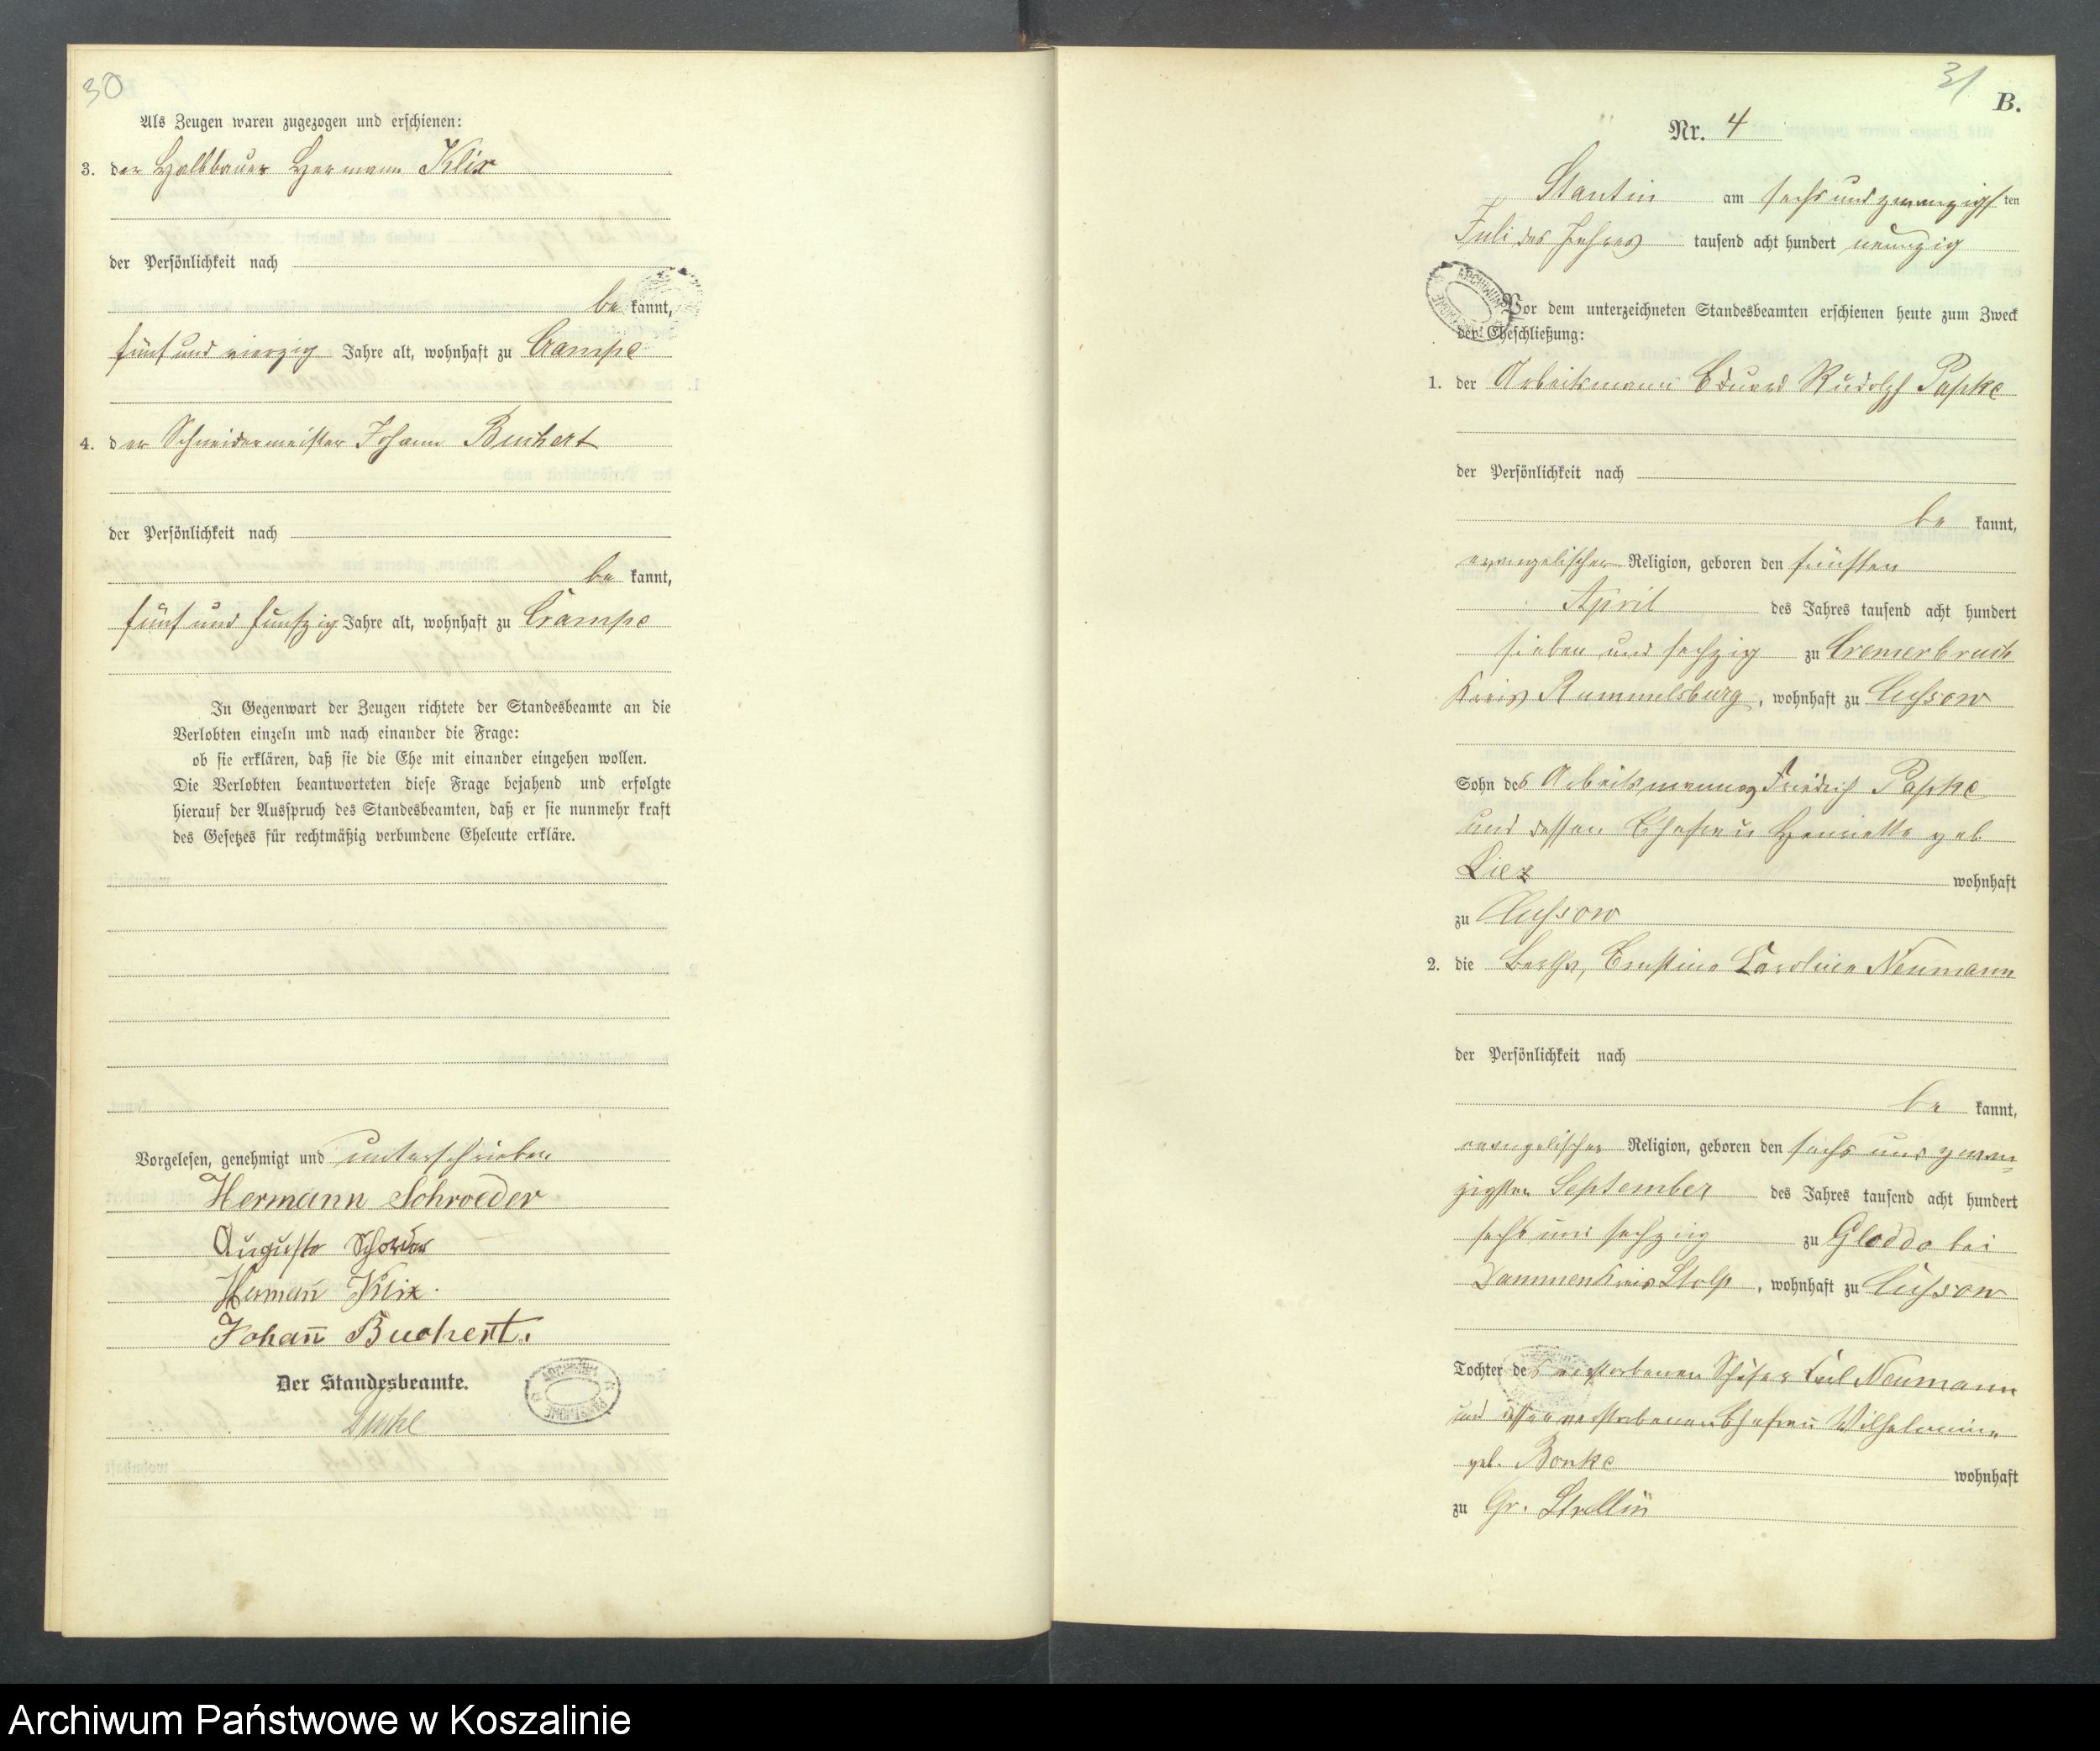 30
Als Zeugen waren zugezogen und erschienen:
3. der Halbbauer Hermann Klix
der Persönlichkeit nach
be kannt,
fünf und vierzig Jahre alt, wohnhaft zu Crampe
4. der Schneidermeister Johann Buchert
der Persönlichkeit nach
be kannt,
fünf und funfzig Jahre alt, wohnhaft zu Crampe
In Gegenwart der Zeugen richtete der Standesbeamte an die
Verlobten einzeln und nach einander die Frage:
ob sie erklären, daß sie die Ehe mit einander eingehen wollen.
Die Verlobten beantworteten diese Frage bejahend und erfolgte
hierauf der Ausspruch des Standesbeamten, daß er sie nunmehr kraft
des Gesetzes für rechtmäßig verbundene Eheleute erkläre.
Vorgelesen, genehmigt und unterschrieben
Hermann Schroeder
Auguste
Hermañ Klix.
Johañ Buchert.
Der Standesbeamte.
31
B.
Nr. 4
Stantin am sechs und zwanzigs ten
Juli des Jahres tausend acht hundert neunzig
Vor dem unterzeichneten Standesbeamten erschienen heute zum Zweck
der Eheschließung:
1. der Arbeitsmann Eduard Rudolph Papke
der Persönlichkeit nach
be kannt,
evangelischer Religion, geboren den fünften
April des Jahres tausend acht hundert
sieben und sechzig zu Cremerbruch
Kreis Rummelsburg, wohnhaft zu Lussow
Sohn des Arbeitsmannes Friedrich Papke
und dessen Ehefrau Henriette geb
Liez wohnhaft
zu Lussow
2. die Bertha, Ernstine Caroline Neumann
der Persönlichkeit nach
be kannt,
evangelischer Religion, geboren den sechs und zwan-
zigsten September des Jahres tausend acht hundert
sechs und sechzig zu Gloddo bei
Dammen Kreis Stolp, wohnhaft zu Lussow
Tochter des verstorbenen Schäfer Carl Neumann
und dessen verstorbenen Ehefrau Wilhelmine
geb. Bonke wohnhaft
zu Gr. Strellin
Archiwum Państwowe w Koszalinie